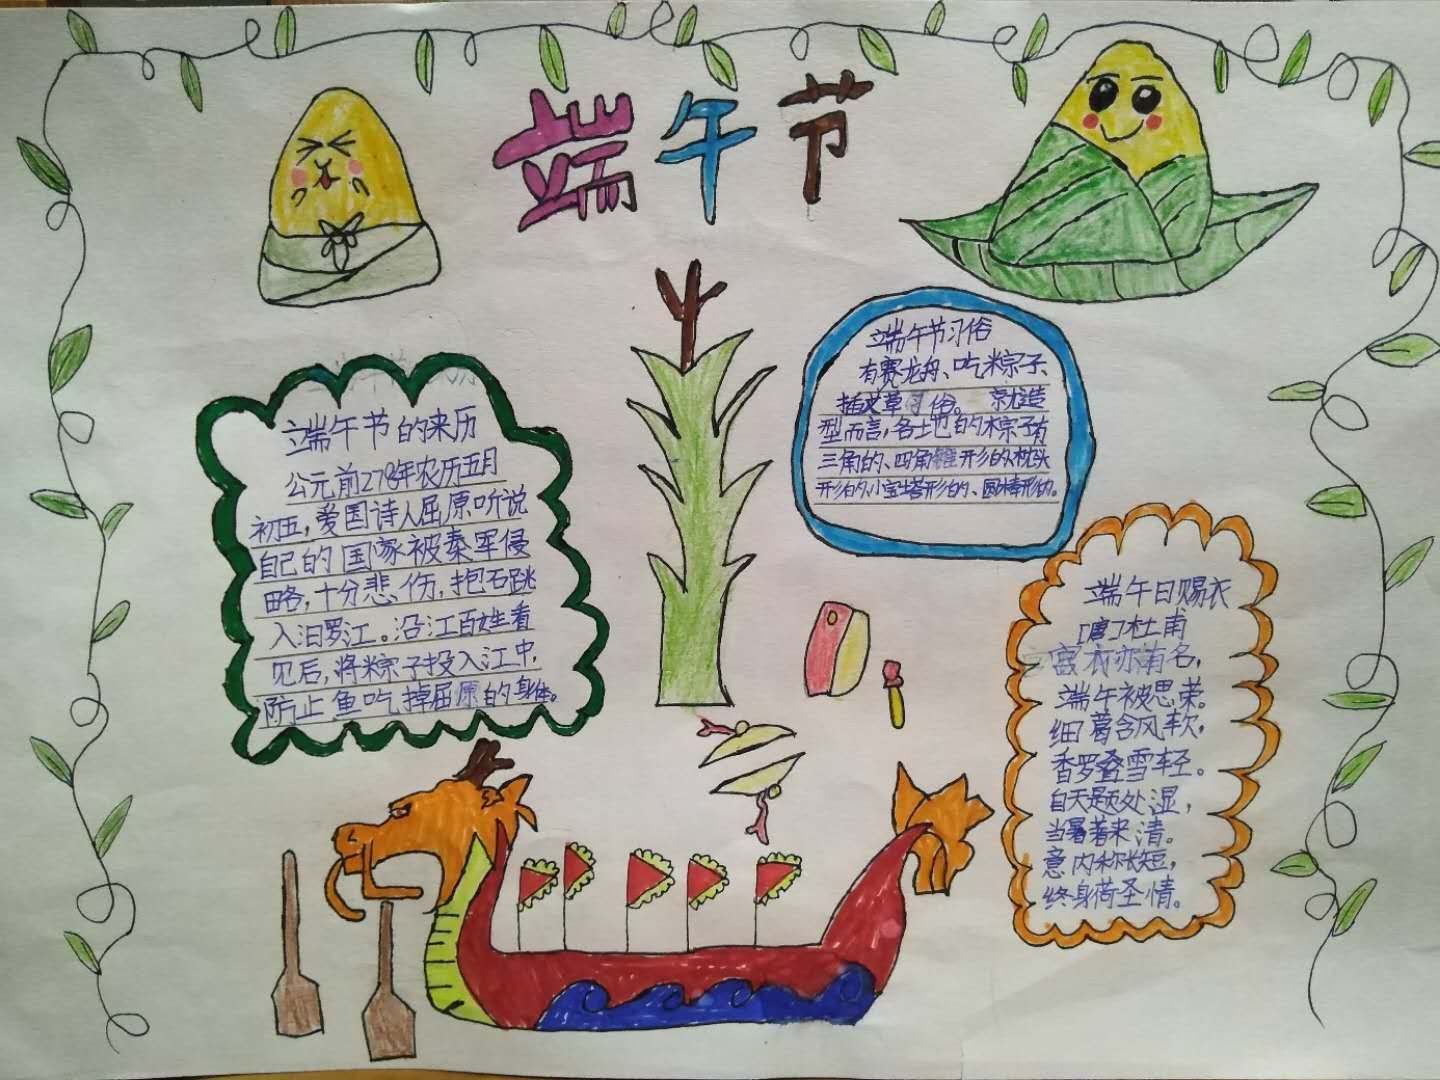 端午节
端午节的来历
公元前278年农历五月
初五，爱国诗人屈原听说
自己的国家被秦军侵
略，十分悲伤，抱石跳
入汨罗江。沿江百姓看
见后，将粽子投入江中，
防止鱼吃掉屈原的身体。
端午节习俗
有赛龙舟、吃粽子、
插艾草习俗。就造
型而言，各地的粽子有
三角的、四角锥形的枕头
形的小宝塔形的、圆棒形的。
端午日赐衣
[唐]杜甫
宫衣亦有名，
端午被恩荣。
细葛含风软，
香罗叠雪轻。
自天题处湿，
当暑著来清。
意内称长短，
终身荷圣情。